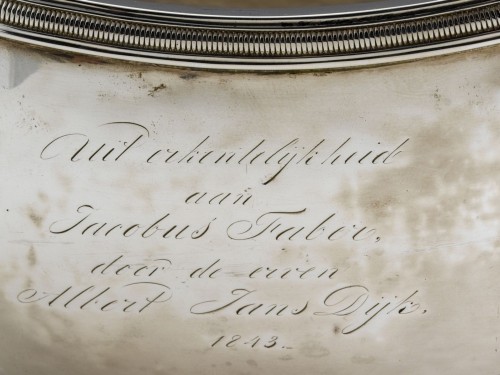 Uit erkentelijkheid
aan
Jacobus Faber,
door de erven
Albert Jans Dijk.
1843.